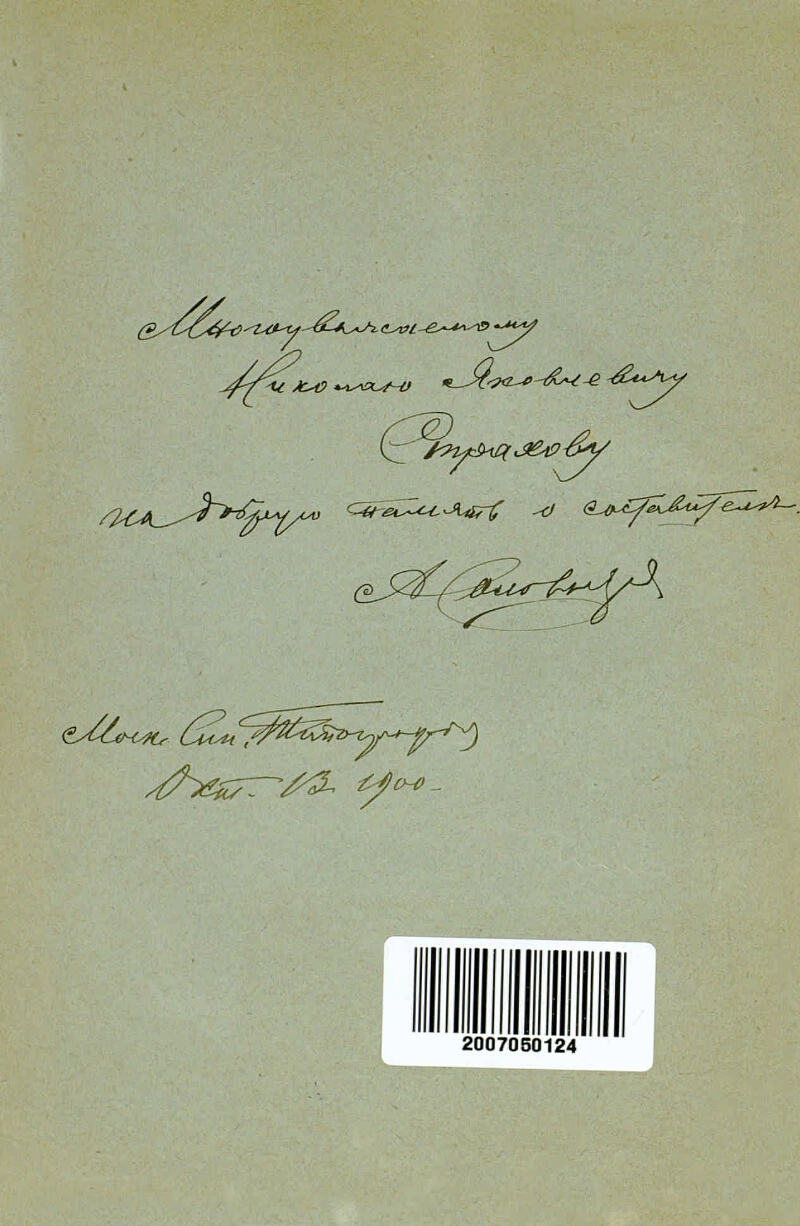 Многоуважаемому
Николаю Яковлевичу
Страхову
на добрую память о составителѣ.
А Соловьев
Моск. Син. Типографія
Окт. 13. 1900.
2007050124